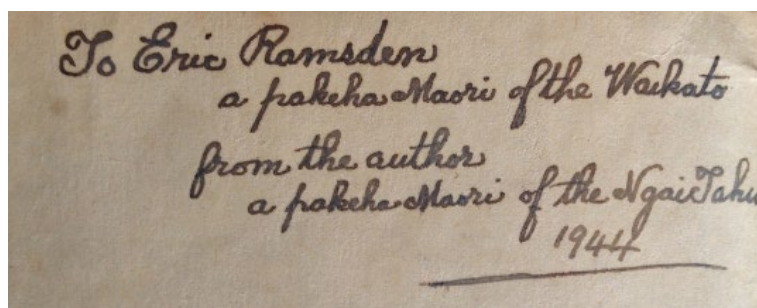 To Eric Ramsden
a pakeha Maori of the Waikato
from the author
a pakeha Maori of the Ngai Tahu
1944